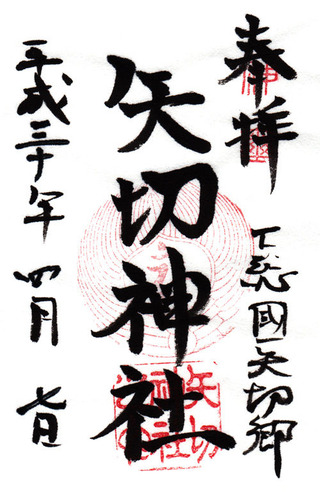 奉拝
下総國矢切郷
矢切神社
平成三十年四月七日